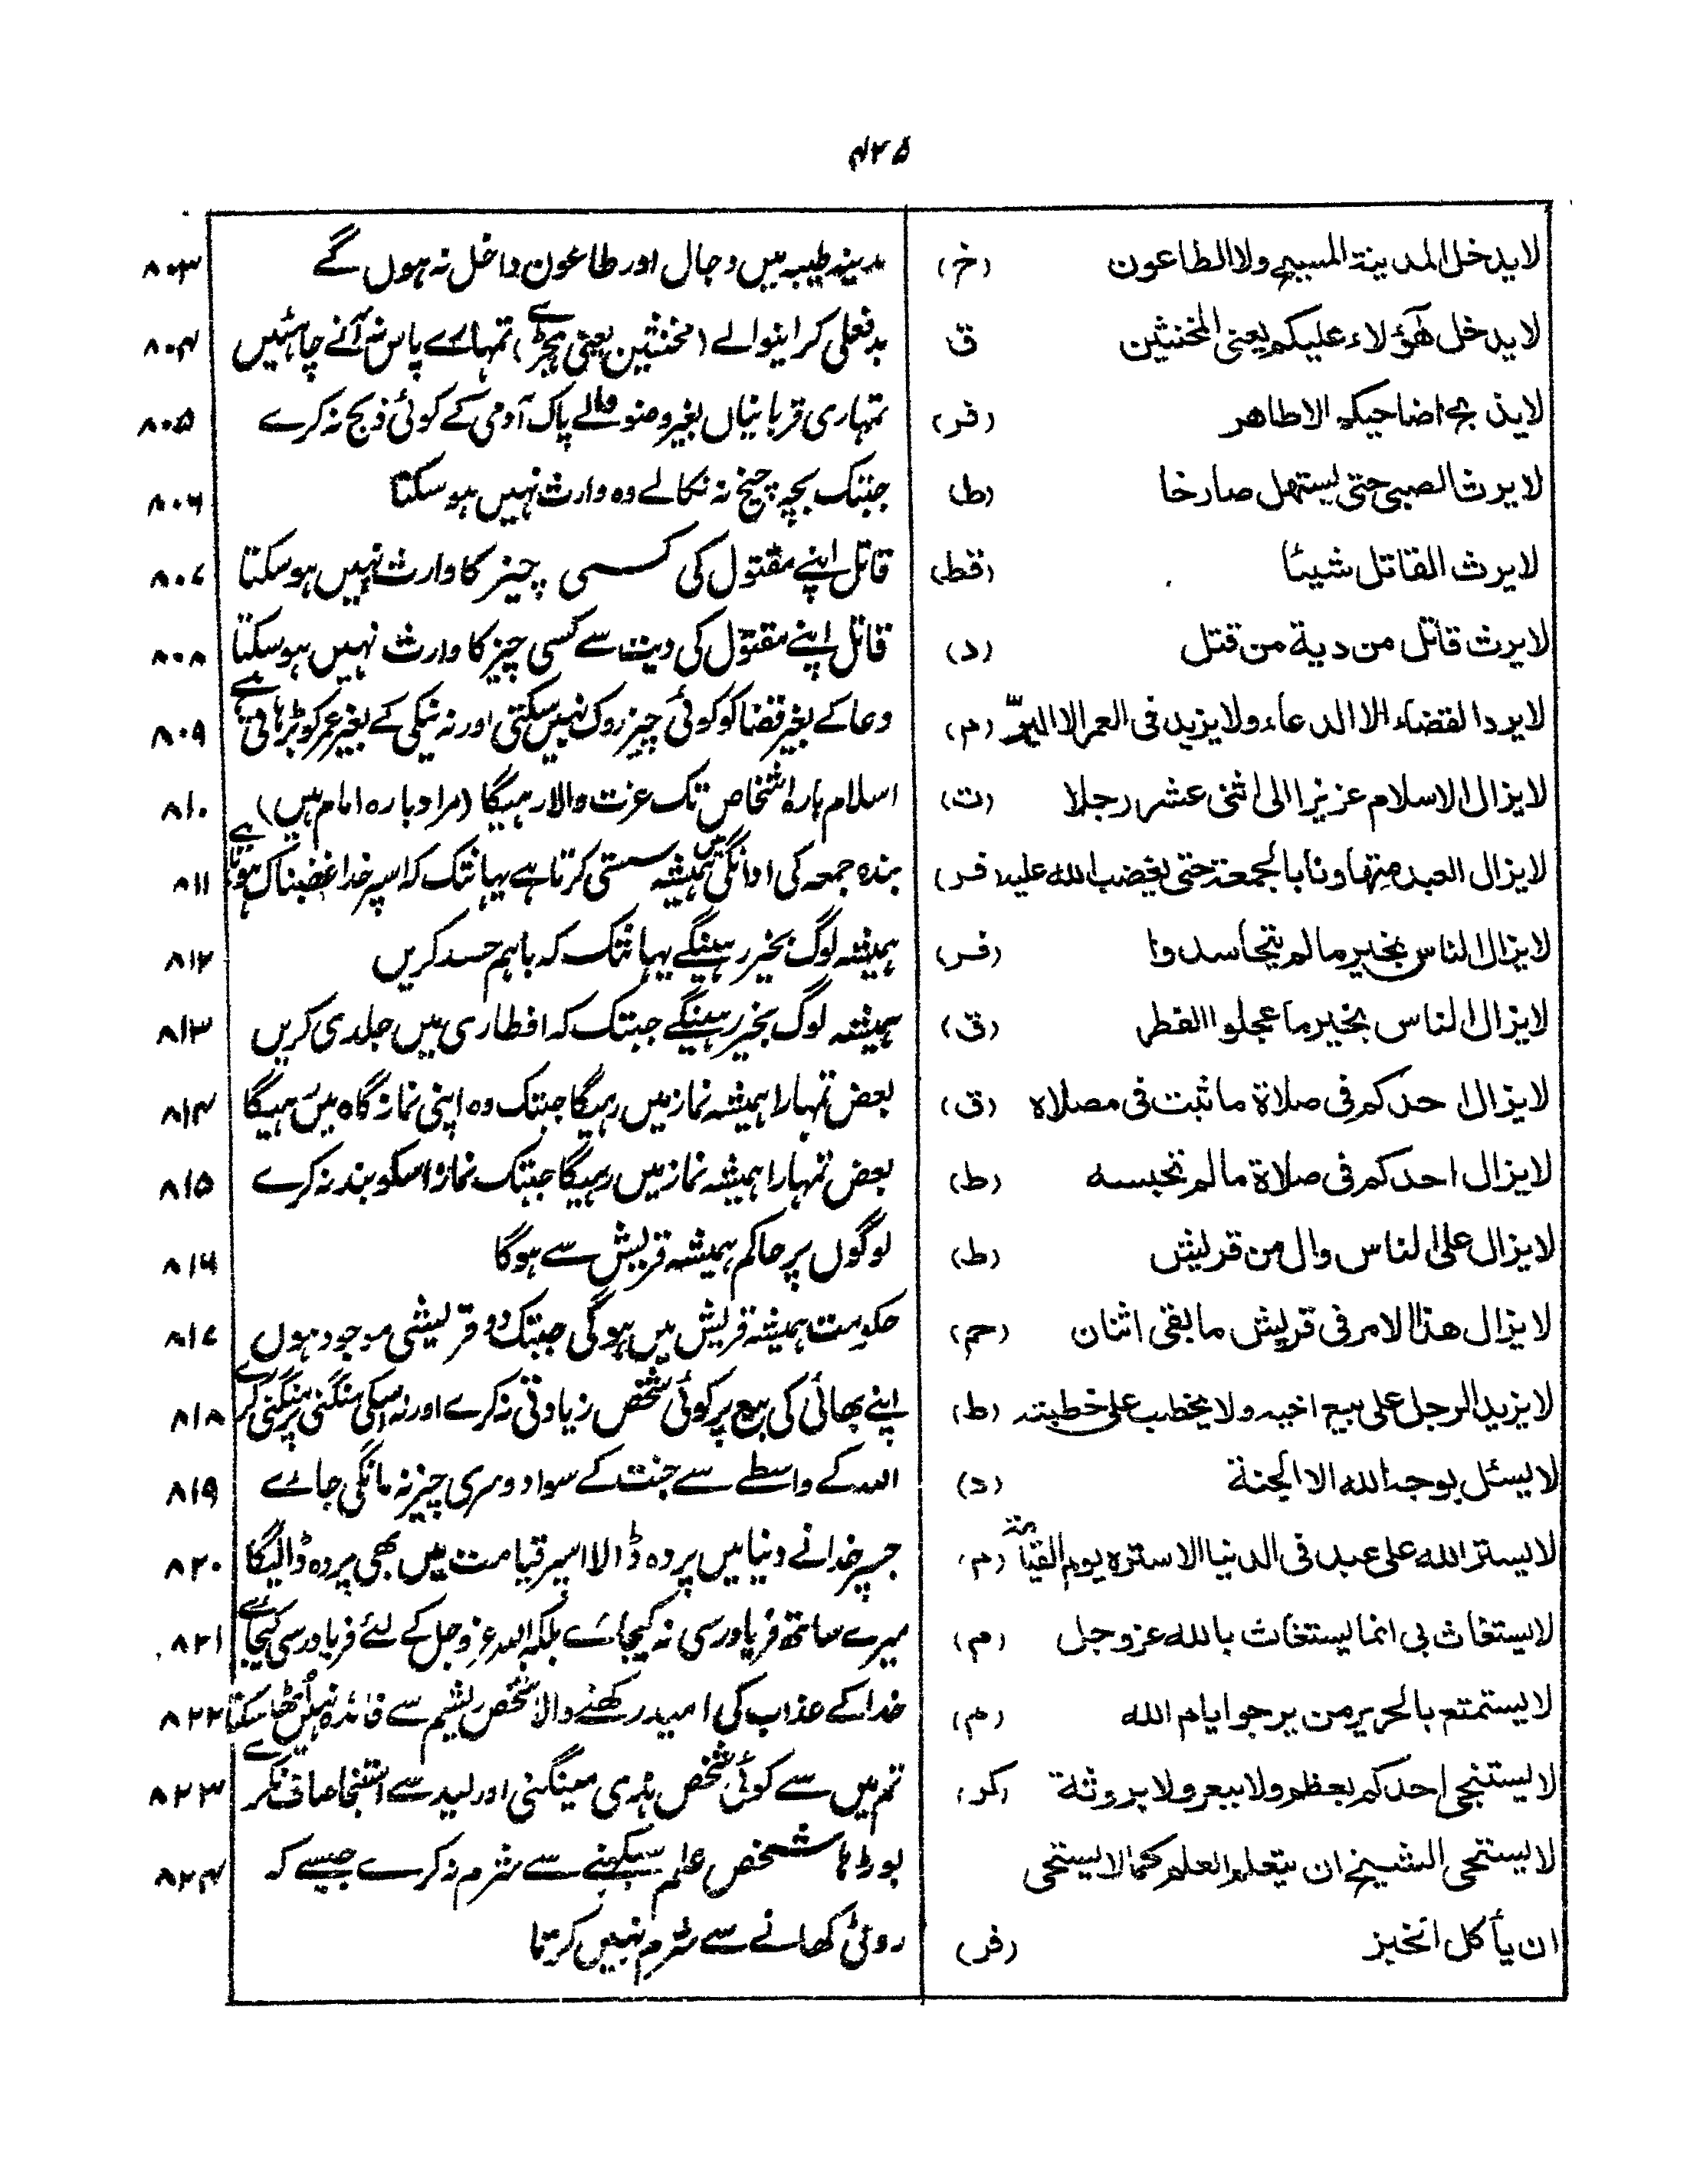 ۴۲۵
لا يدخل المدينة المسيح ولا الطاعون (خ) مدینہ طیبہ میں دجال اور طاعون داخل نہ ہوں گے ۸۰۳
لا يدخل هؤلاء عليكم يعنى المخنثين ق بدفعلی کرانیوالے (مخنثین یعنی ہیجڑے) تمہارے پاس نہ آنے چاہئیں ۸۰۴
لا يذبح اضاحيكم الا طاهر (فر) تمہاری قربانیاں بغیر وضو والے پاک آدمی کے کوئی ذبح نہ کرے ۸۰۵
لا يرث الصبى حتى يستهل صارخا (ط) جبتک بچہ چیخ نہ نکالے وہ وارث نہیں ہو سکتا ۸۰۶
لا يرث القاتل شيئا (قط) قاتل اپنے مقتول کی کسی چیز کا وارث نہیں ہو سکتا ۸۰۷
لا يرث قاتل من دية من قتل (د) قاتل اپنے مقتول کی دیت سے کسی چیز کا وارث نہیں ہو سکتا ۸۰۸
لا يرد القضاء الا الدعاء ولا يزيد فى العمر الا البرّ (م) دعا کے بغیر قضا کو کوئی چیز روک نہیں سکتی اور نہ نیکی کے بغیر عمر کو بڑہاتی ہے ۸۰۹
لا يزال الاسلام عزيزا الى اثنى عشر رجلا (ت) اسلام بارہ اشخاص تک عزت والا رہیگا (مراد بارہ امام ہیں) ۸۱۰
لا يزال العبد متهاونا بالجمعة حتى يغضب الله عليه (فر) بندہ جمعہ کی ادائگی میں ہمیشہ سستی کرتا ہے یہانتک کہ اسپر خدا غضبناک ہوتا ہے ۸۱۱
لا يزال الناس بخير ما لم يتحاسدوا (فر) ہمیشہ لوگ بخیر رہینگے یہانتک کہ باہم حسد کریں ۸۱۲
لا يزال الناس بخير ما عجلوا الفطر (ق) ہمیشہ لوگ بخیر رہینگے جبتک کہ افطاری میں جلدی کریں ۸۱۳
لا يزال احدكم فى صلاة ما ثبت فى مصلاه (ق) بعض تمہارا ہمیشہ نماز میں رہیگا جبتک وہ اپنی نماز گاہ میں رہیگا ۸۱۴
لا يزال احدكم فى صلاة ما لم تحبسه (ط) بعض تمہارا ہمیشہ نماز میں رہیگا جبتک نماز اسکو بند نہ کرے ۸۱۵
لا يزال على الناس وال من قريش (ط) لوگوں پر حاکم ہمیشہ قریش سے ہوگا ۸۱۶
لا يزال هذا الامر فى قريش ما بقى اثنان (حم) حکومت ہمیشہ قریش میں ہوگی جبتک دو قریشی موجود ہوں ۸۱۷
لا يزيد الرجل على بيع اخيه ولا يخطب على خطبته (ط) اپنے بھائی کی بیع پر کوئی شخص زیادتی نہ کرے اور نہ اسکی منگنی پر منگنی کرے ۸۱۸
لا يسئل بوجه الله الا الجنة (د) اللہ کے واسطے سے جنت کے سوا دوسری چیز نہ مانگی جاے ۸۱۹
لا يستر الله على عبد فى الدنيا الا ستره يوم القيامة (م) جسپر خدا نے دنیا میں پردہ ڈالا اسپر قیامت میں بھی پردہ ڈالیگا ۸۲۰
لا يستغاث بى انما يستغاث بالله عز وجل (م) میرے ساتھ فریاد رسی نہ کیجاۓ بلکہ اللہ عز وجل کے لئے فریاد رسی کیجاۓ ۸۲۱
لا يستمتع بالحرير من يرجوا ايام الله (م) خدا کے عذاب کی امید رکھنے والا شخص ریشم سے فائدہ نہیں اٹھا سکتا ۸۲۲
لا يستنجى احدكم بعظم ولا ببعر ولا بروثة (کر) تم میں سے کوئی شخص ہڈی مینگنی اور لید سے استنجا صاف نکرے ۸۲۳
لا يستحى الشيخ ان يتعلم العلم كما لا يستحى بوڑہا شخص علم سیکہنے سے شرم نہ کرے جیسے کہ ۸۲۴
ان يأكل الخبز (فر) روٹی کھانے سے شرم نہیں کرتا